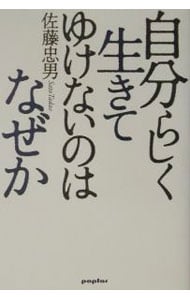 自分らしく
生きて
ゆけないのは
なぜか
佐藤忠男
Sato Tadao
poplar